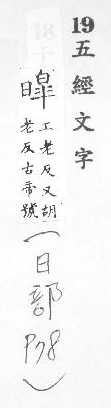 19五經文字
暤
工老反又胡
老反古帝號
(日部P78)